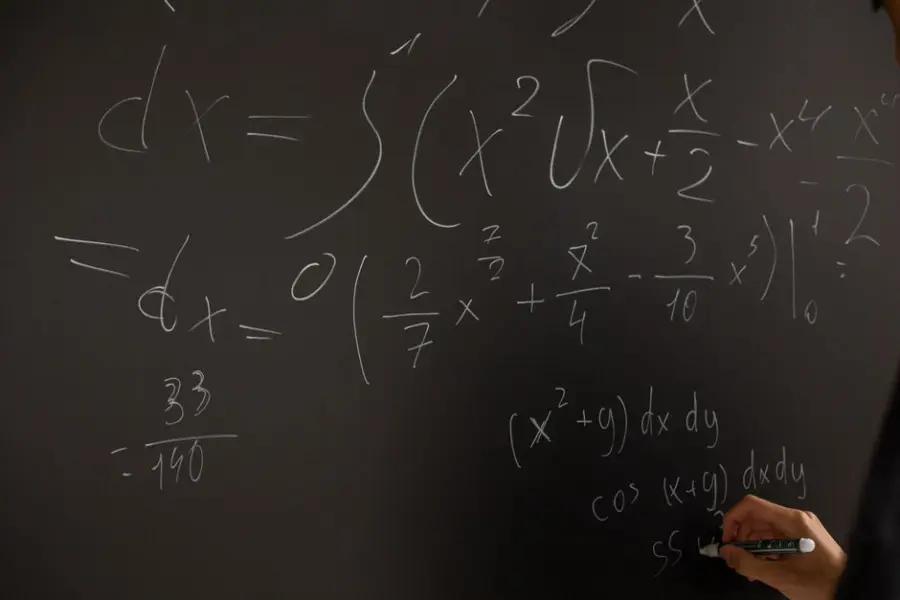 x
dx = ∫₀¹ (x²√x + x/2 - x⁴ - x⁴/2
= dx = (2/7 x^(7/2) + x²/4 - 3/10 x⁵)|₀¹ =
= 33/140
(x² + y) dx dy
cos (x+y) dx dy